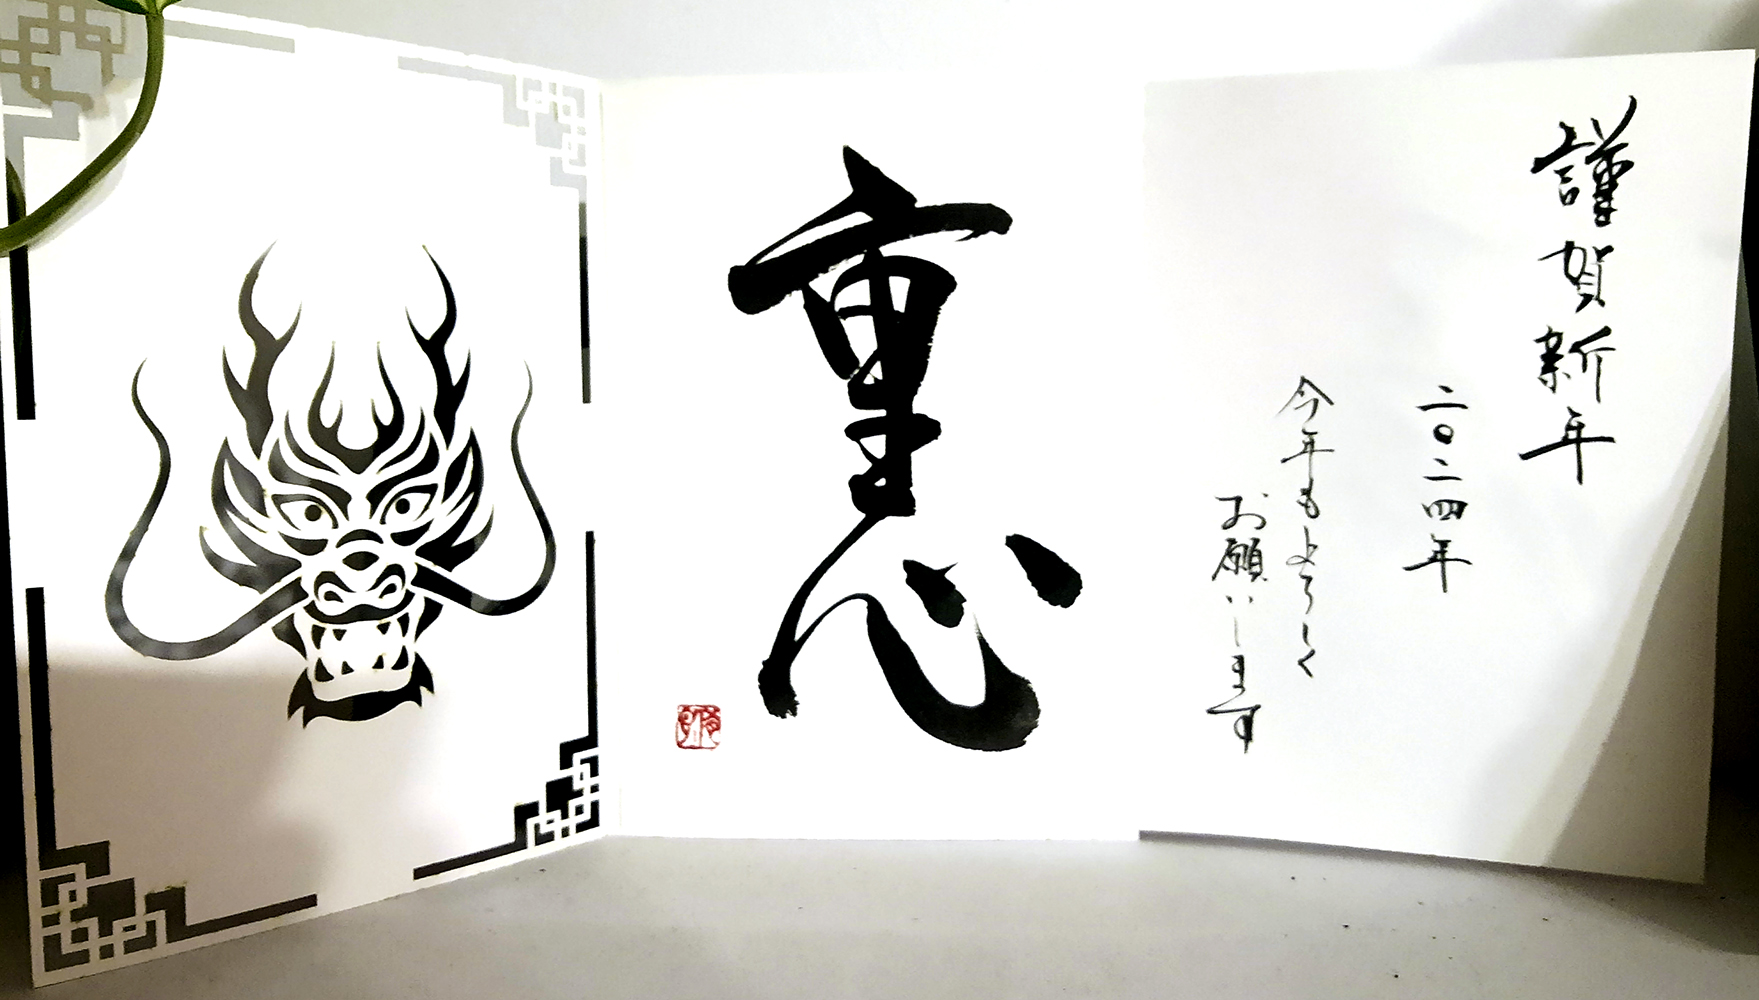 謹賀新年
二〇二四年
今年もよろしく
お願いします
重心